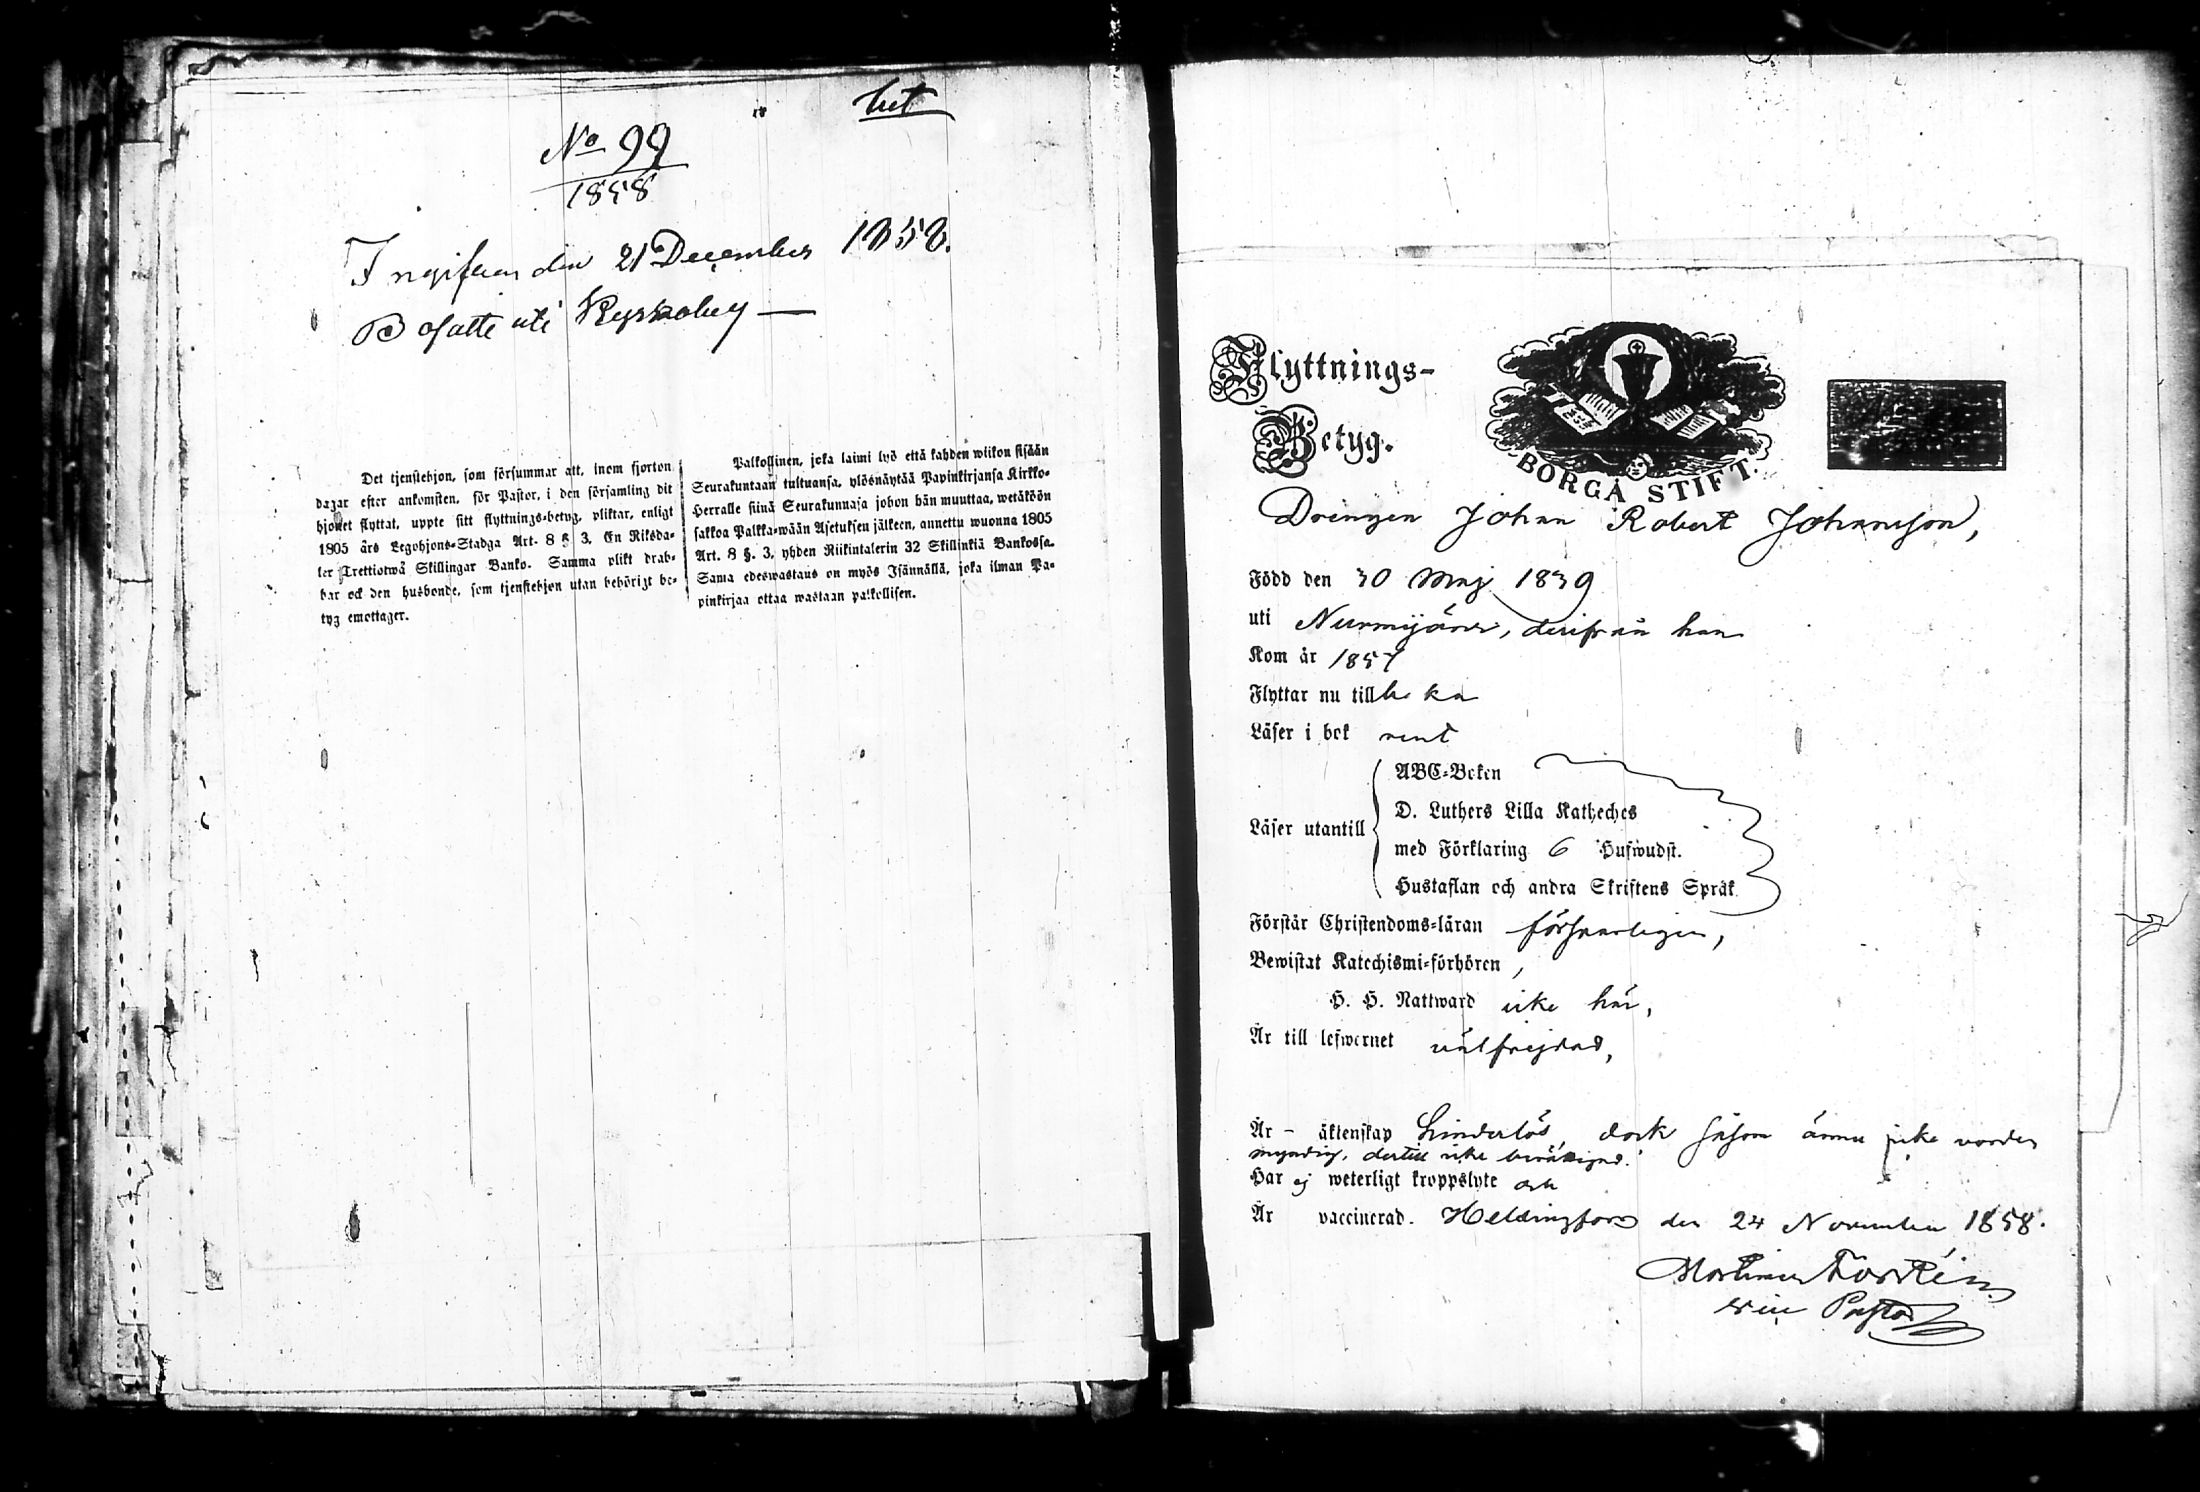 No 99
1858
Ingifven den 21 December 1858.
Bosatt uti
Det tjenstehjon, som försummar att, inom fjorton
dagar efter ankomsten, för Pastor, i den församling dit
hjonet flyttat, uppte sitt flyttnings-betyg, pliktar, enligt
1805 års Legohjons-Stadga Art. 8 § 3, En Riksda-
ler Trettiotwå Skillingar Banko. Samma plikt drab-
bar ock den husbonde, som tjenstehjon utan behörigt be-
tyg emottager.
Palkollinen, joka laimi lyö että kahden wiikon sisään
Seurakuntaan tultuansa, ylösnäytää Papinkirjansa Kirkko-
Herralle siinä Seurakunnasa johon hän muuttaa, wetäköön
sakkoa Palkka-wään Asetuksen jälkeen, annettu wuonna 1805
Art. 8 §. 3, yhden Riikintalerin 32 Skillinkiä Bankossa.
Sama edeswastaus on myös Isännällä, joka ilman Pa-
pinkirjaa ottaa wastaan palkollisen.
Flyttnings-
Betyg.
BORGÅ STIFT.
Drengen Johan Robert Johansson,
Född den 30 Maj 1839
uti Nurmijärvi, derifrån han
Kom år 1857
Flyttar nu tillbaka
Läser i bok rent
Läser utantill
ABC-Boken
D. Luthers Lilla Katheches
med Förklaring 6 Hufwudst.
Hustaflan och andra Skriftens Språk
Förstår Christendoms-läran försvarligen,
Bewistat Katechismi-förhören,
H. H. Nattward icke här,
Är till lefwernet välfrejdad,
Är - äktenskap hinderlös, dock såsom ännu icke vorden
myndig, dertill icke berättigad.
Har ej weterligt kroppslyte och
Är vaccinerad. Helsingfors den 24 November 1858.
Pastor